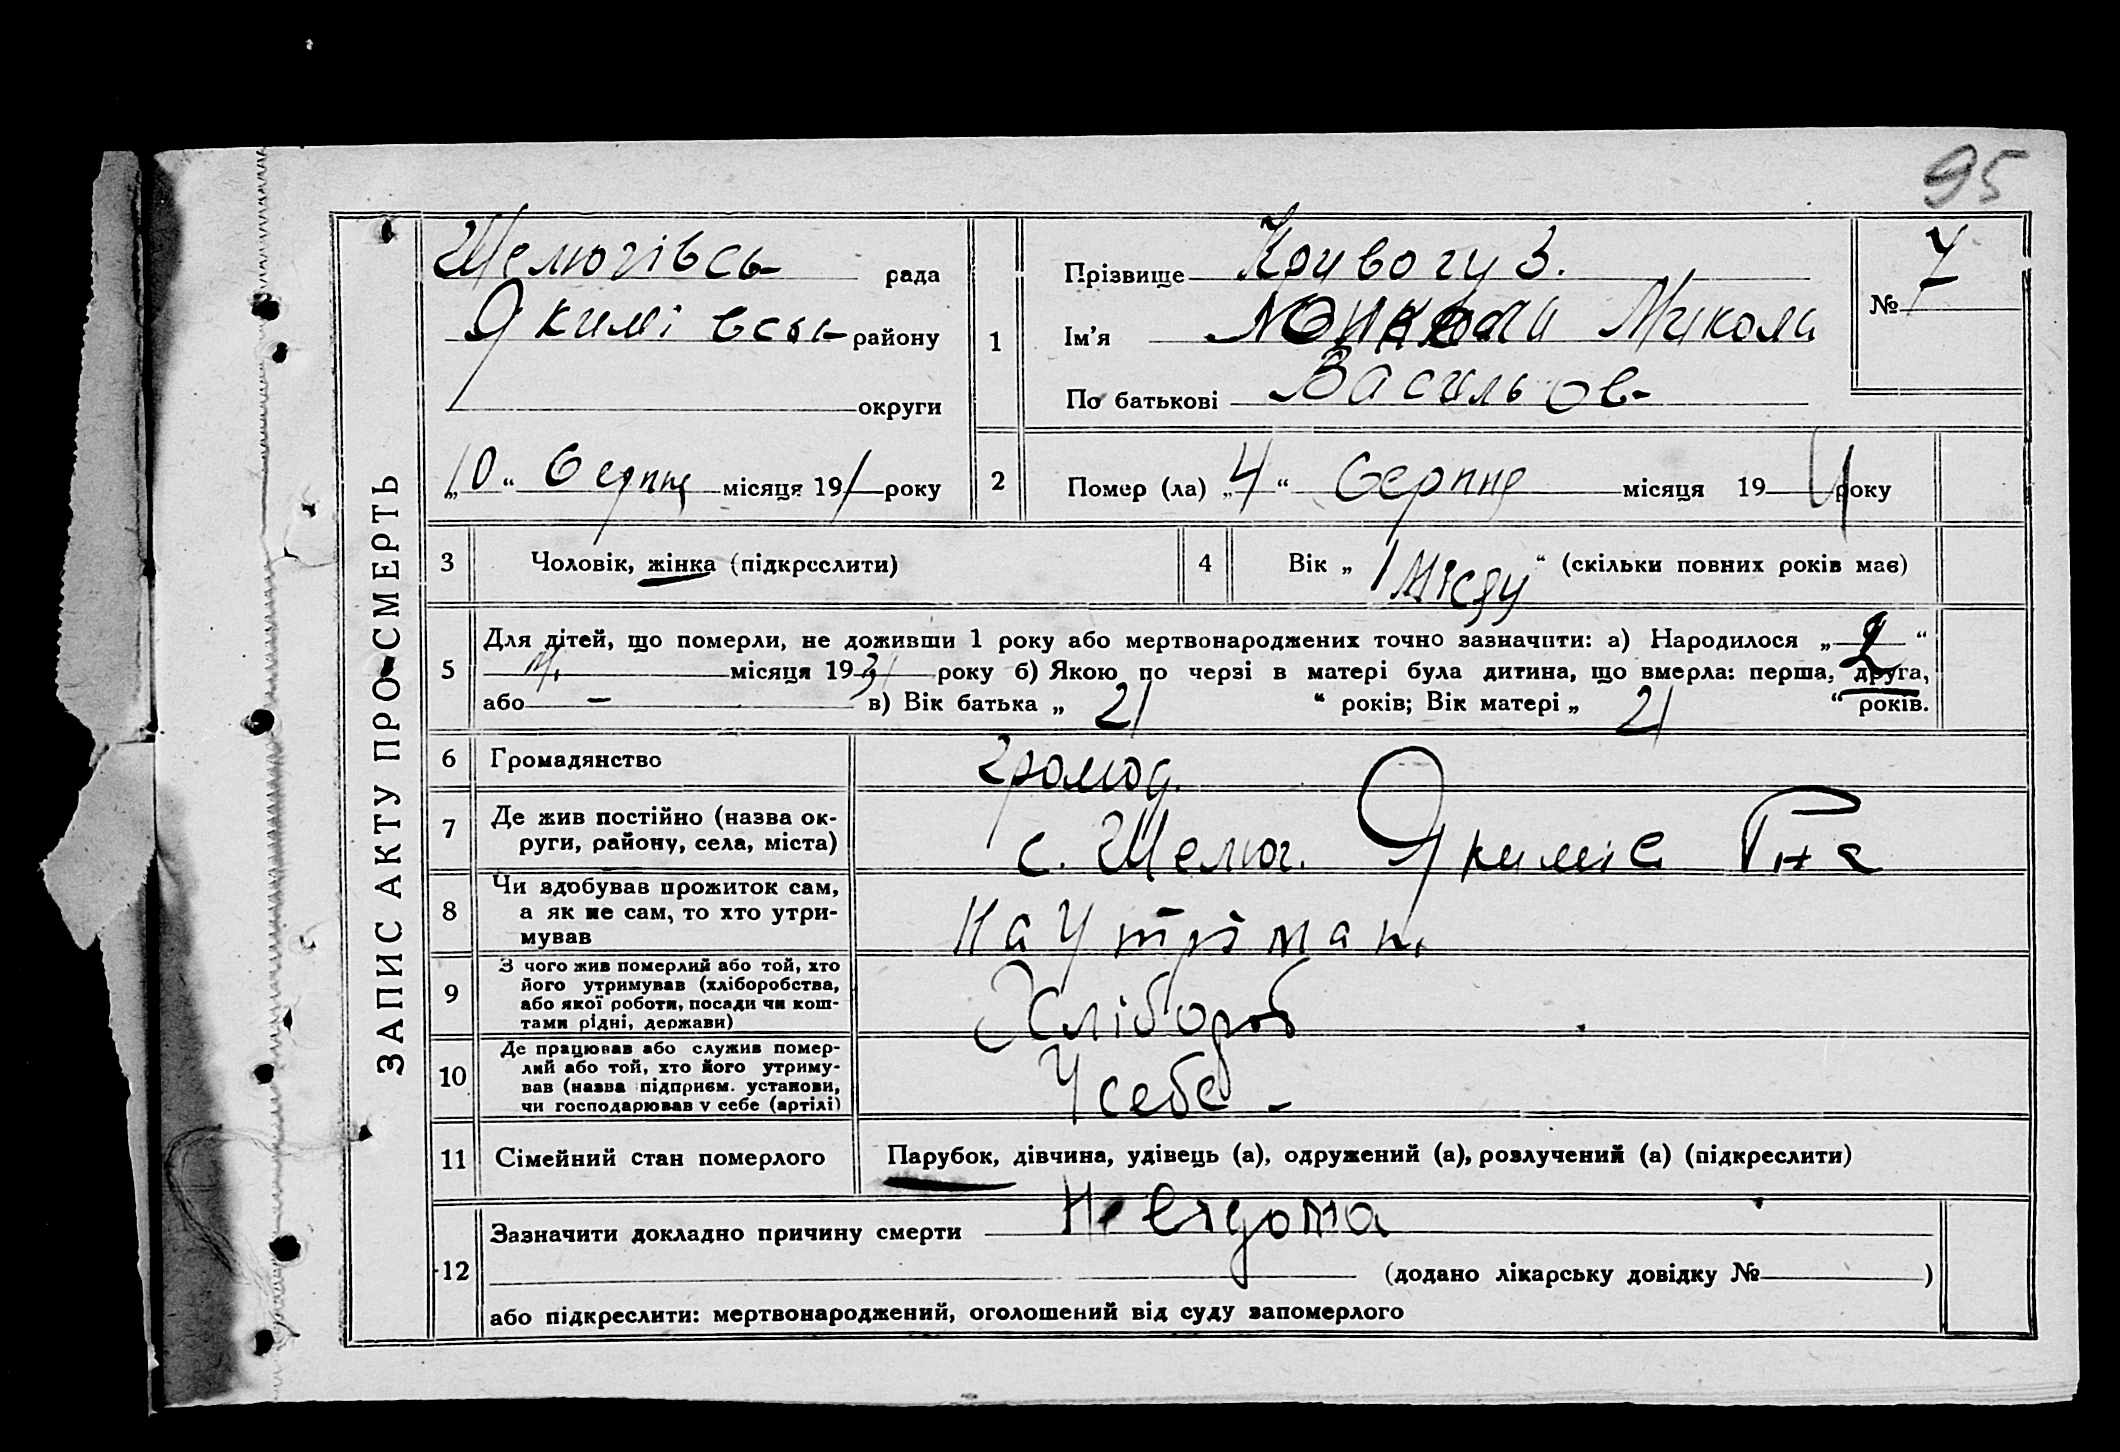 95
ЗАПИС АКТУ ПРО СМЕРТЬ
Шелюгівсь рада
Якимівськ району
округи
„10“ Серпня місяця 191 року
1
Прізвище Кривогуз.
Ім'я Микола
По батькові Васильов-
№ 7
2
Помер (ла) „4“ Серпня місяця 19 року
3
Чоловік, жінка (підкреслити)
4
Вік „1 місяц“ (скільки повних років має)
5
Для дітей, що померли, не доживши 1 року або мертвонароджених точно зазначити: а) Народилося „2“
місяця 1931 року б) Якою по черзі в матері була дитина, що вмерла: перша, друга,
або - в) Вік батька „21“ років; Вік матері „21“ років.
6
Громадянство
громад.
7
Де жив постійно (назва ок-
руги, району, села, міста)
с. Шелюг. Якимів Р-на
8
Чи здобував прожиток сам,
а як не сам, то хто утри-
мував
На утриман.
9
З чого жив померлий або той, хто
його утримував (хліборобства,
або якої роботи, посади чи кош-
тами рідні, держави)
Хлібороб
10
Де працював або служив помер-
лий або той, хто його утриму-
вав (назва підприєм. установи,
чи господарював у себе (артілі)
У себе -
11
Сімейний стан померлого
Парубок, дівчина, удівець (а), одружений (а), розлучений (а) (підкреслити)
12
Зазначити докладно причину смерти Невідома
(додано лікарську довідку № )
або підкреслити: мертвонароджений, оголошений від суду запомерлого